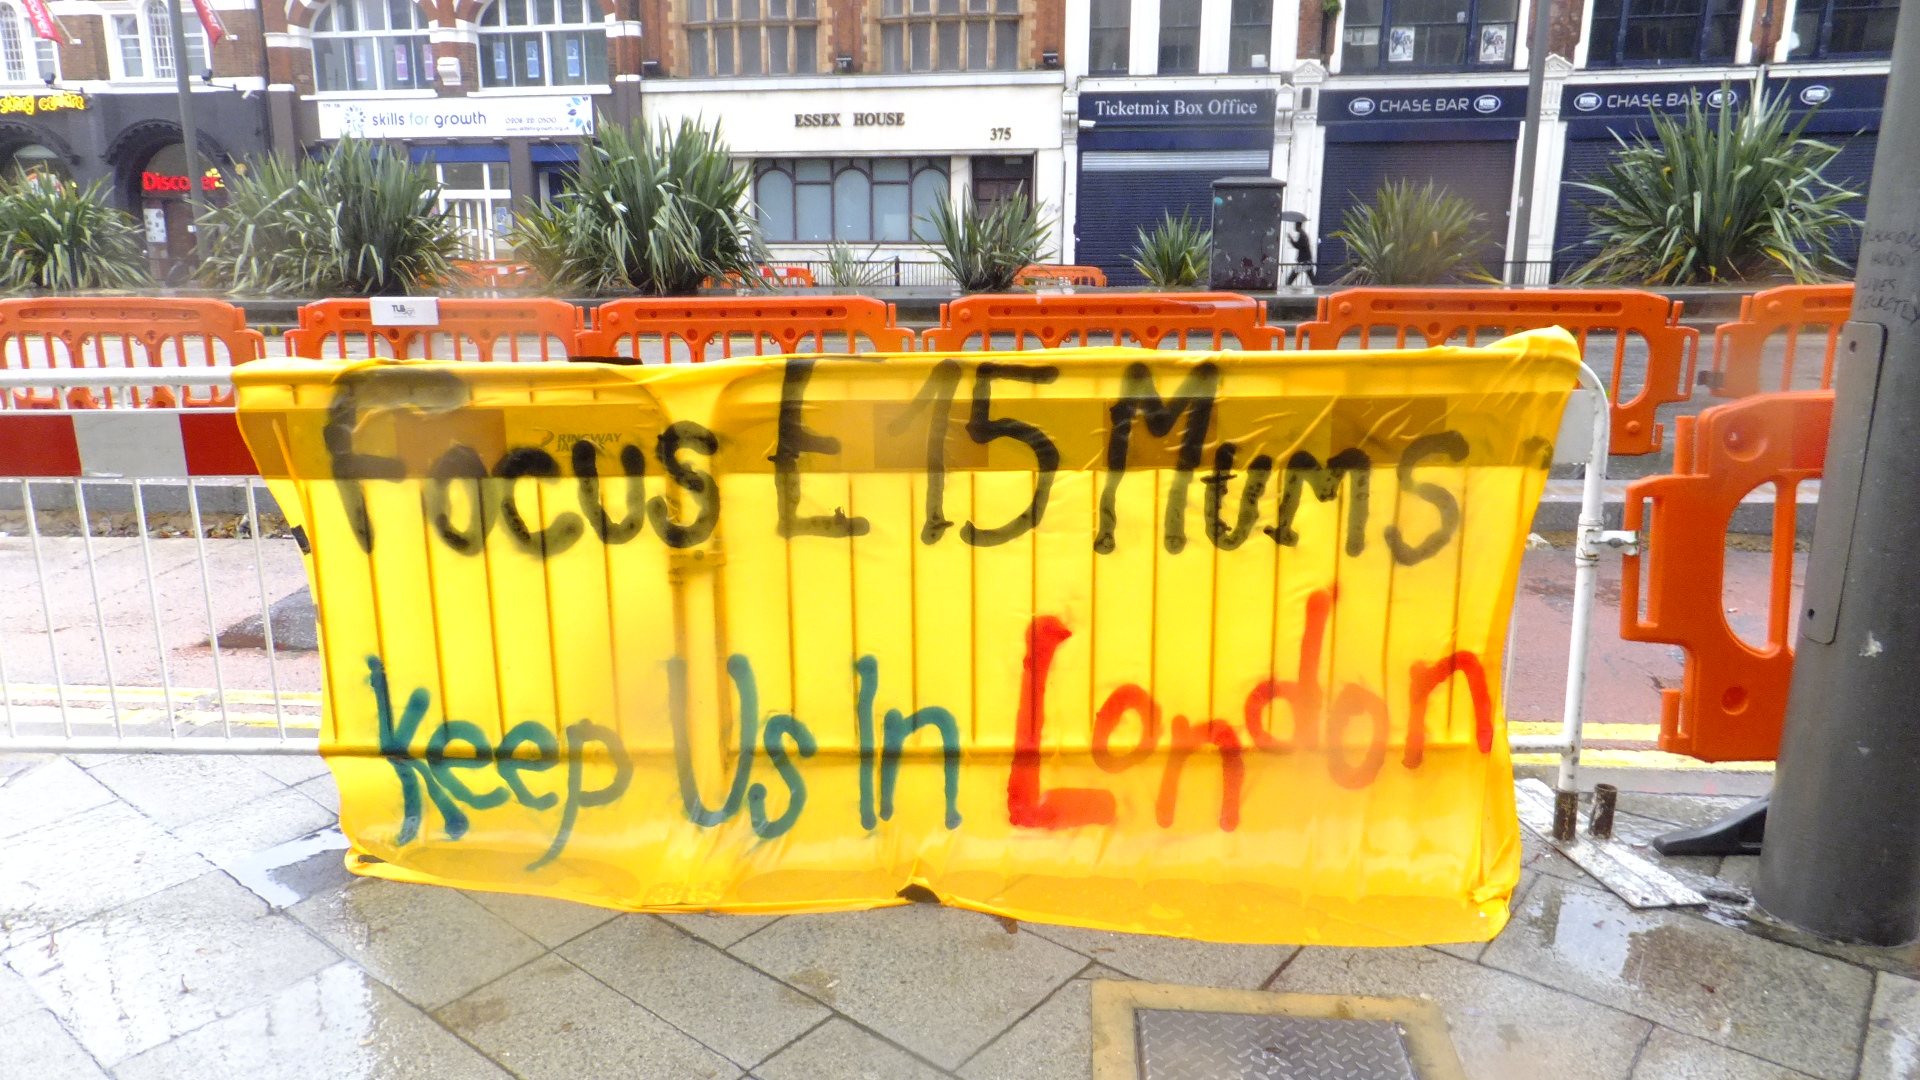 skills for growth
ESSEX HOUSE
375
Ticketmix Box Office
CHASE BAR
CHASE BAR
TLB
RINGWAY
Focus E15 Mums
Keep Us In London